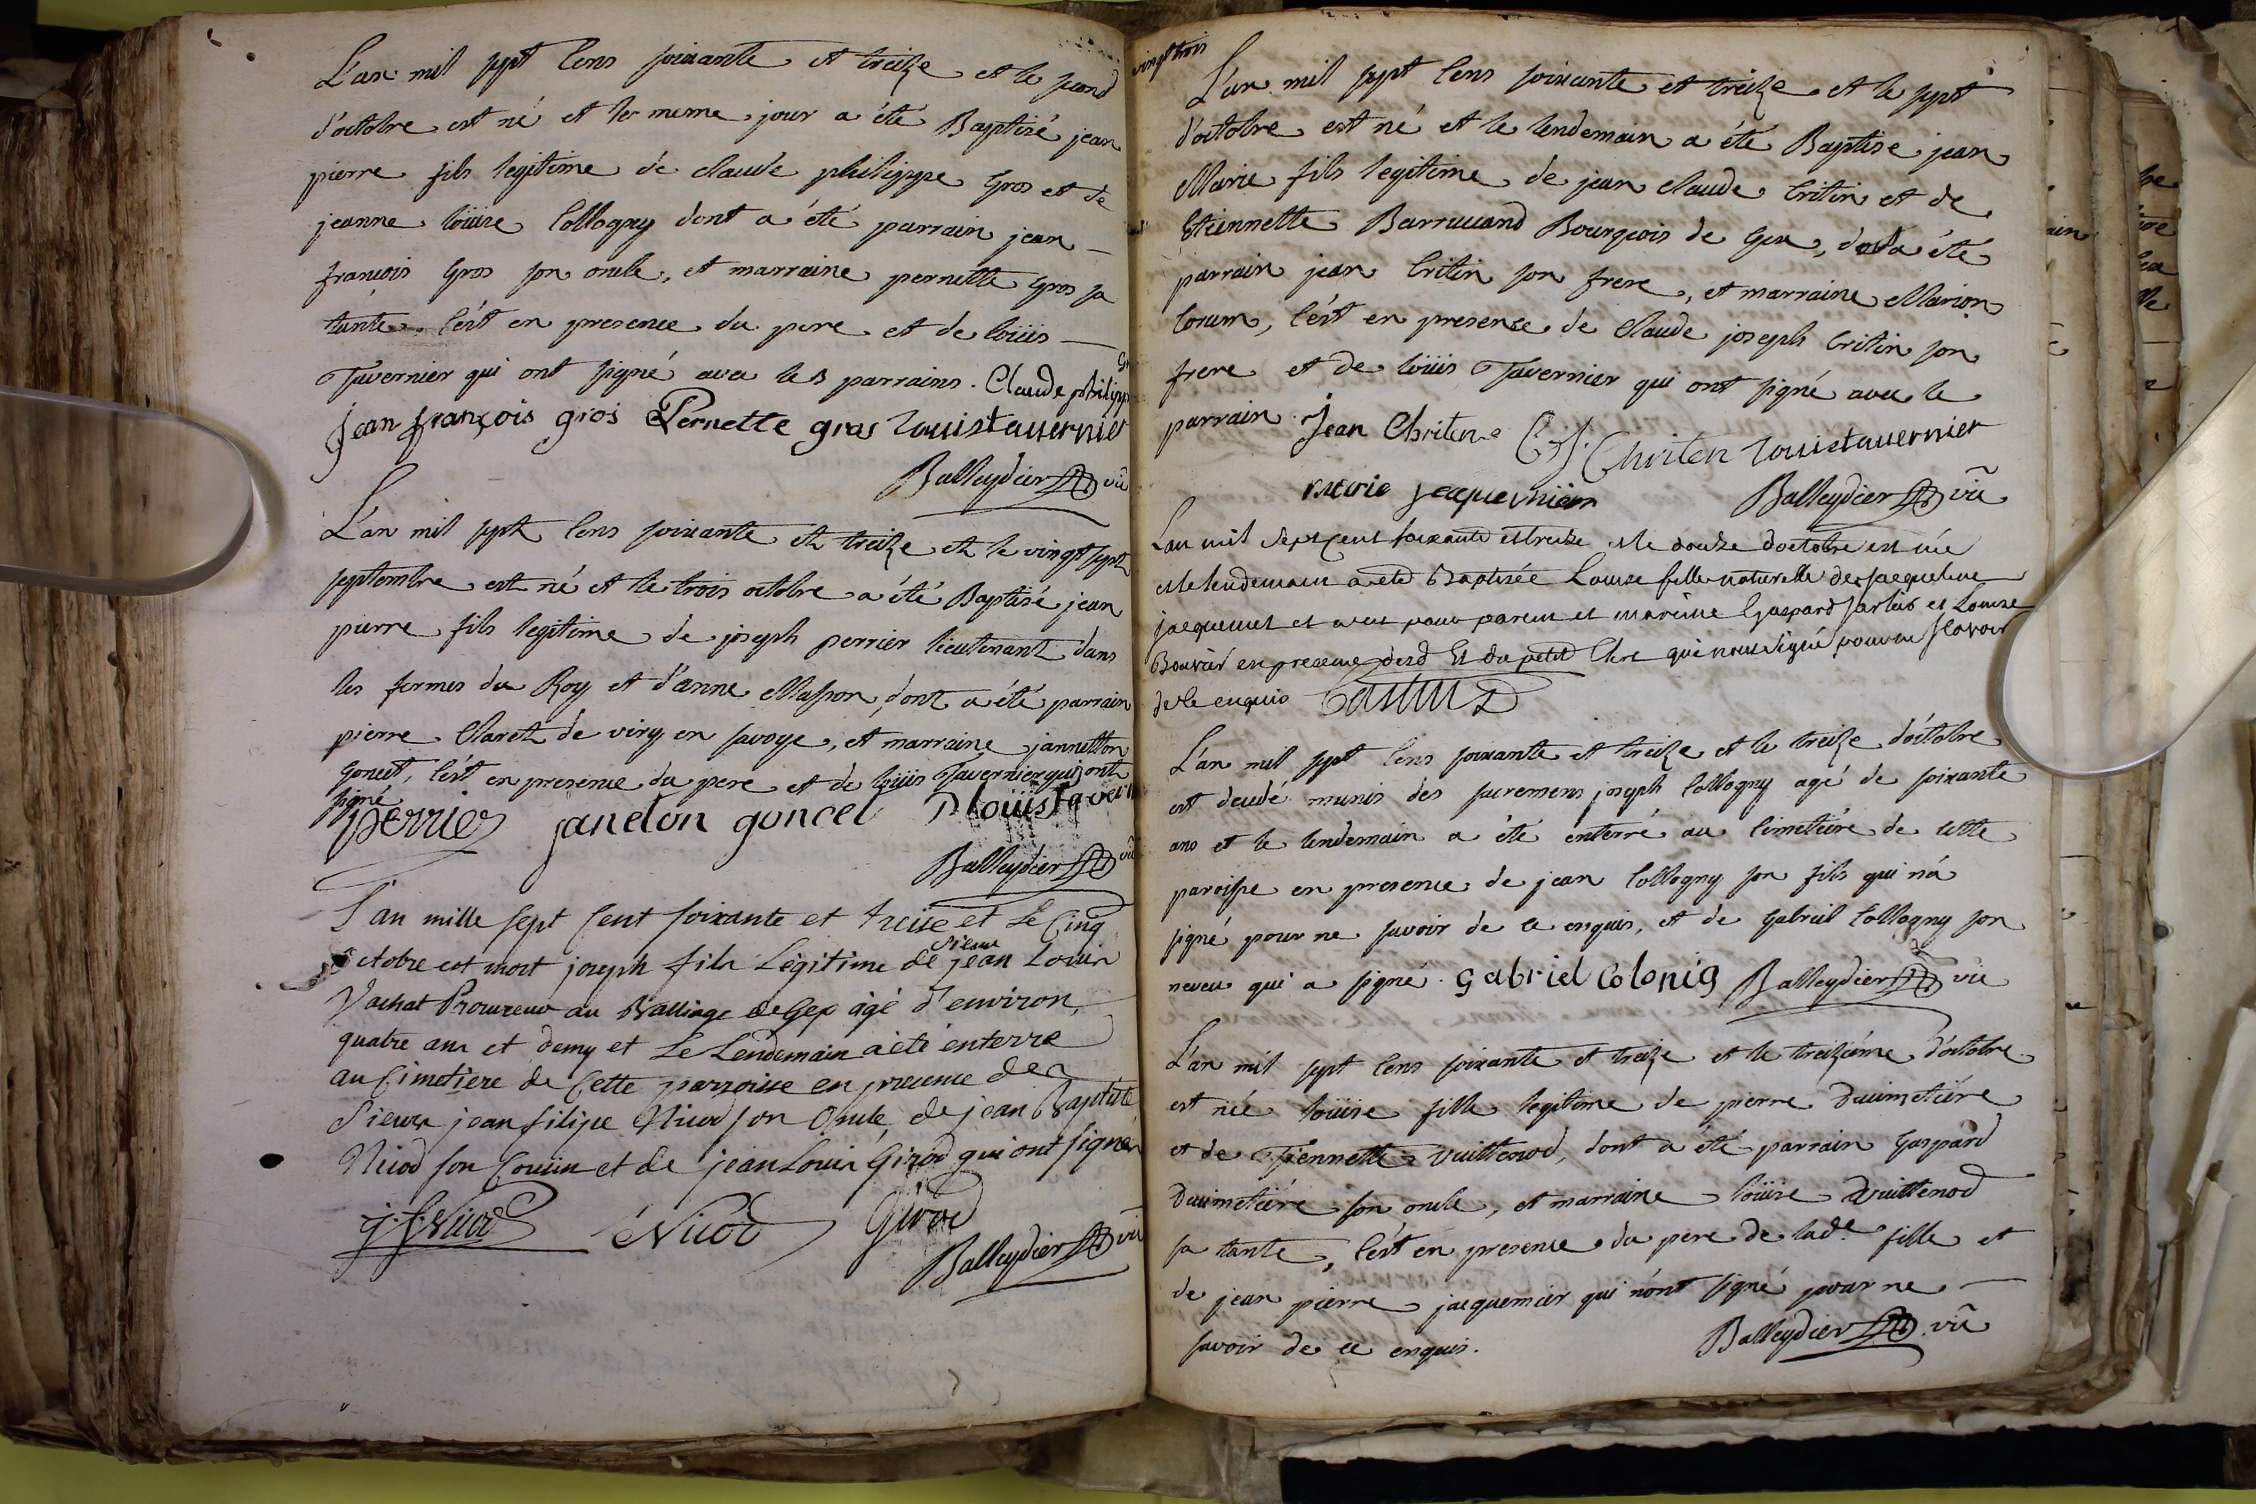 L'an mil sept Cens soixante et treize et le second
d'octobre est né et le meme jour a été Baptisé jean
pierre fils legitime de claude philippe Gros et de
jeanne loüise Collogny dont a été parrain jean
francois Gros son oncle, et marraine pernette Gros sa
tante. C'est en presence du pere et de loüis
Tavernier qui ont signé avec les parrains. Claude philipp
jean françois gros Pernette gros louistauernier
Balleydier vic
L'an mil sept Cens soixante et treize et le vingt sept
septembre est né et le trois octobre a été Baptisé jean
pierre fils legitime de joseph perrier lieutenant dans
les fermes du Roy et d'anne Masson, dont a été parrain
pierre Claret de viry en savoye, et marraine jannetton
Goncet, C'est en presence du pere et de loüis Tavernier qui ont
signé
perrier janeton goncet loüistavern
Balleydier vic
L'an mille sept Cent soixante et treise et Le Cinq
octobre est mort joseph fils Légitime de sieur jean Louis
Vachat Procureur au Balliage de Gex âgé d'environ
quatre ans et demy et Le Lendemain a été enterré
au Cimetiere de Cette parroisse en presence des
Sieurs jean filipe Nicod son Oncle, de jean Baptiste
Nicod son Cousin et de jean Louis Girod qui ont signés
j. f. Nicod Nicod Girod
Balleydier vic
vingt trois
L'an mil sept Cens soixante et treize et le sept
d'octobre est né et le lendemain a été Baptisé jean
Marie fils legitime de jean claude Critin et de
Etiennette Barruuand Bourgeois de Gex, dont a été
parrain jean Critin son frere, et marraine Marion
Corum, C'est en presence de Claude joseph Critin son
frere et de loüis Tavernier qui ont signé avec le
parrain. Jean Chriten C. j. Chriten louistauernier
marie jacquemier Balleydier vic
Lan mil sept cent soixante et treize et le douze doctobre est née
et le lendemain a eté Baptisée Louise fille naturelle de jacqueline
jacquemet et a eu pour parein et mareine Gaspard et Louise
Bouvier en presence et du petit Clerc qui nont signé pour ne scavoir
de ce enquis
L'an mil sept Cens soixante et treize et le treize d'octobre
est decedé munis des sacremens joseph Collogny agé de soixante
ans et le lendemain a été enterré au Cimetiere de cette
paroisse en presence de jean Collogny son fils qui n'a
signé pour ne savoir de ce enquis, et de Gabriel Collogny son
neveu qui a signé. Gabriel Colonig Balleydier vic
L'an mil sept Cens soixante et treize et le treiziéme d'octobre
est née loüise fille legitime de pierre Ducimetiére
et de Tiennette Vuittenod, dont a été parrain Gaspard
Ducimetiére son oncle, et marraine loüise Vuittenod
sa tante, C'est en presence du pere de lad.e fille et
de jean pierre jacquemier qui n'ont signé pour ne
savoir de ce enquis. Balleydier vic